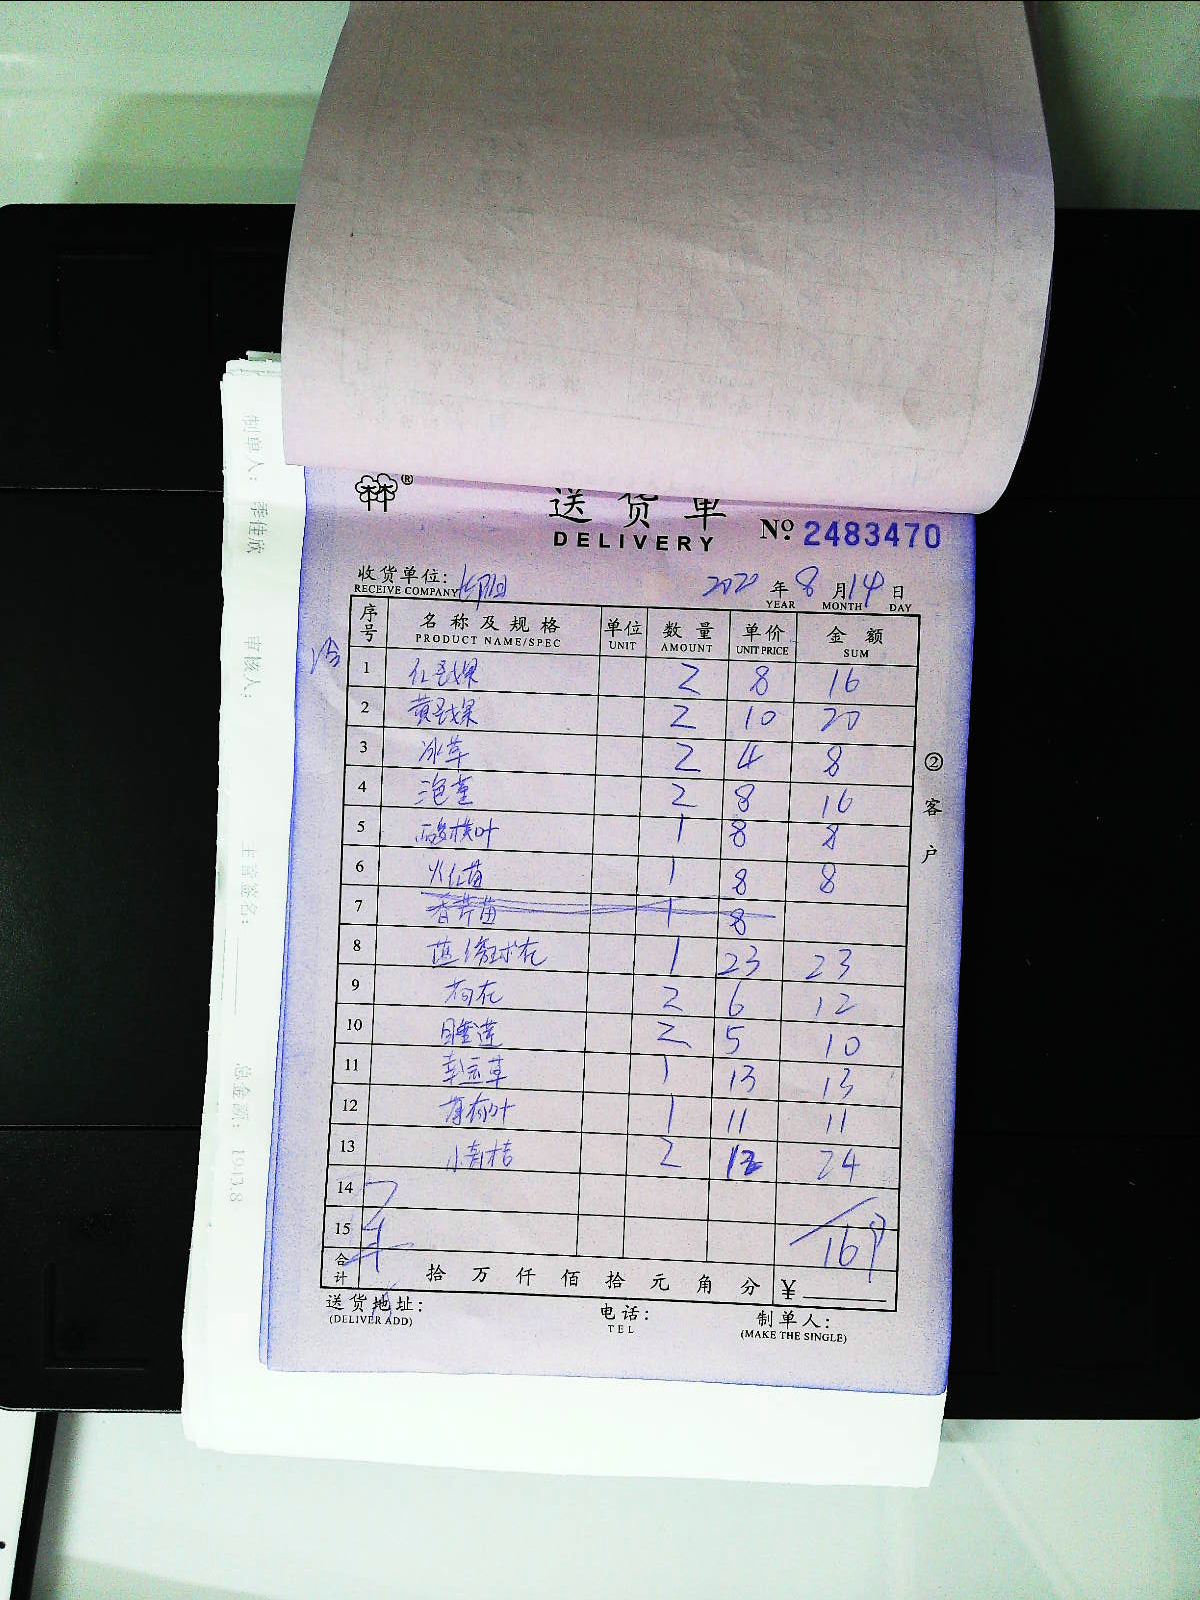 送货单
DELIVERY
№ 2483470
收货单位:
RECEIVE COMPANY
2020 年 8 月 14 日
YEAR MONTH DAY
序号 名称及规格 单位 数量 单价 金额
PRODUCT NAME/SPEC UNIT AMOUNT UNIT PRICE SUM
1 红圣女果 2 8 16
2 黄圣女果 2 10 20
3 冰草 2 4 8
4 泡茎 2 8 16
5 酸模叶 1 8 8
6 火红苗 1 8 8
7 香芹苗 1 8
8 球花 1 23 23
9 荷花 2 6 12
10 睡莲 2 5 10
11 幸运草 1 13 13
12 薄荷叶 1 11 11
13 小青桔 2 12 24
14
15 169
合计 拾万仟佰拾元角分 ¥
送货地址:
(DELIVER ADD)
电话:
TEL
制单人:
(MAKE THE SINGLE)
②客户
制单人: 季佳欣
审核人:
主管签名:
总金额: 1943.8